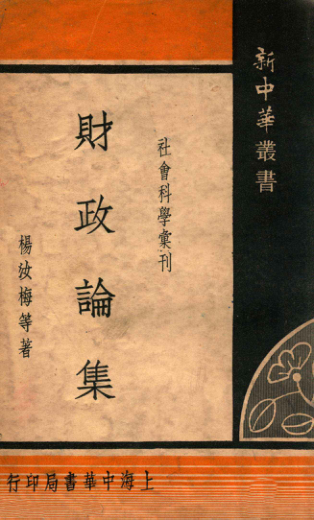 新中華叢書
社會科學彙刊
財政論集
楊汝梅等著
上海中華書局印行